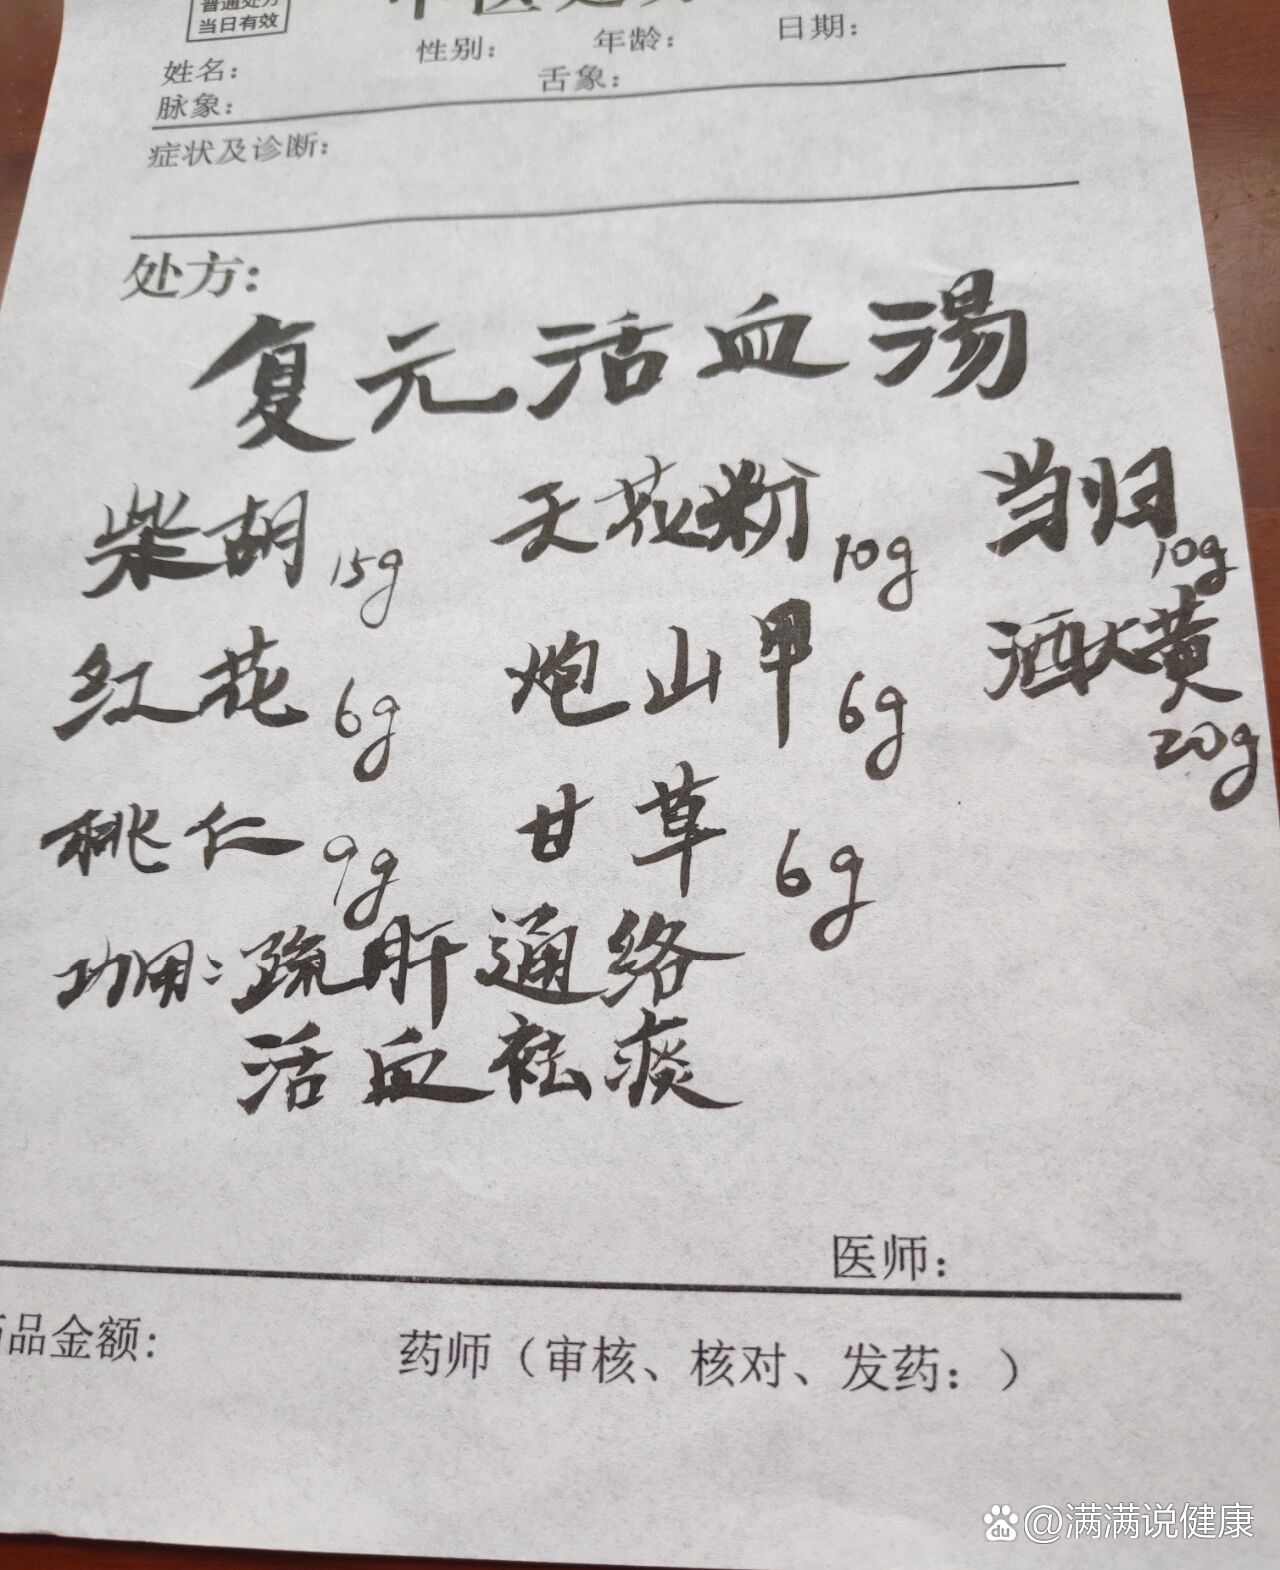 普通处方
当日有效
性别： 年龄： 日期：
姓名：
脉象： 舌象：
症状及诊断：
处方：
复元活血汤
柴胡15g 天花粉10g 当归10g
红花6g 炮山甲6g 酒大黄20g
桃仁9g 甘草6g
功用：疏肝通络
活血祛痰
医师：
品金额：
药师（审核、核对、发药：）
@满满说健康